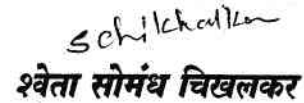 schikhalkar
श्वेता सोमंध चिखलकर